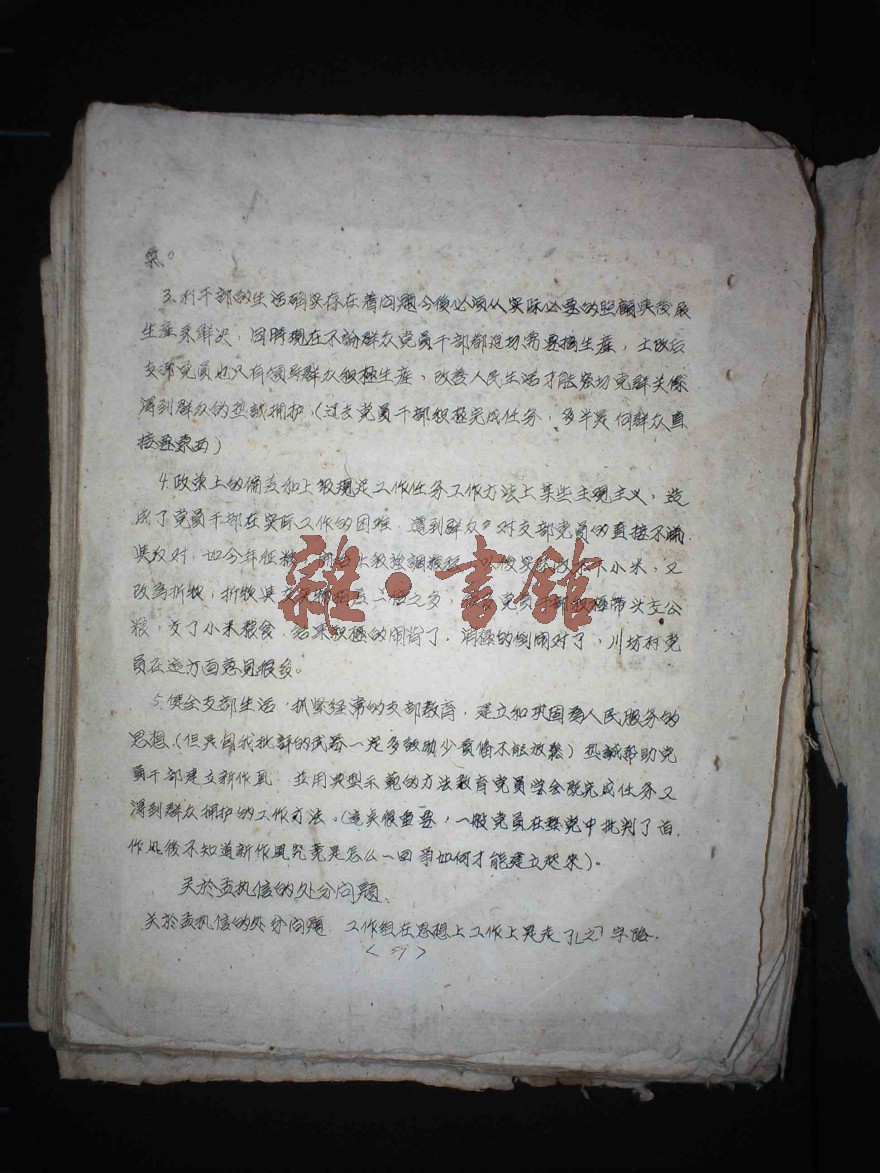 气。
3、村干部的生活确实存在着问题今後必须从实际必要的照顾与发展
生产来解决，同时现在不论群众党员干部都迫切需要搞生产，土改后
支部党员也只有领导群众积极生产，改善人民生活才能密切党群关係
得到群众的热诚拥护，（过去党员干部积极完成任务，多半是向群众直
接要东西）
4.政策上的偏差和上级规定工作任务工作方法上某些主观主义，造
成了党员干部在实际工作的困难 遭到群众 对支部党员的直接不满
与反对，如今年征粮 上级强调 小米，又
改为折收，折收 之多， 党员干部积极带头交公
粮，交了小米粮食，结果积极的闹背了，消极的倒闹对了，川坊村党
员在这方面意见很多。
5.健全支部生活，抓紧经常的支部教育，建立和巩固为人民服务的
思想，（但是自我批评的武器一定多鼓励少责备不能放松）热诚帮助党
员干部建立新作风，并用典型示范的方法教育党员学会既完成任务又
得到群众拥护的工作方法。（这点很重要，一般党员在整党中批判了旧
作风後不知道新作风究竟是怎么一回事如何才能建立起来）。
关於孟执信的处分问题、
关於孟执信的处分问题，工作组在思想上工作上是走了之字路.
<59>
雜·書館